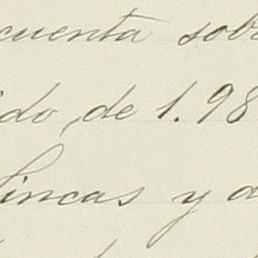 cuenta sobr
ido, de 1.98
fincas y d